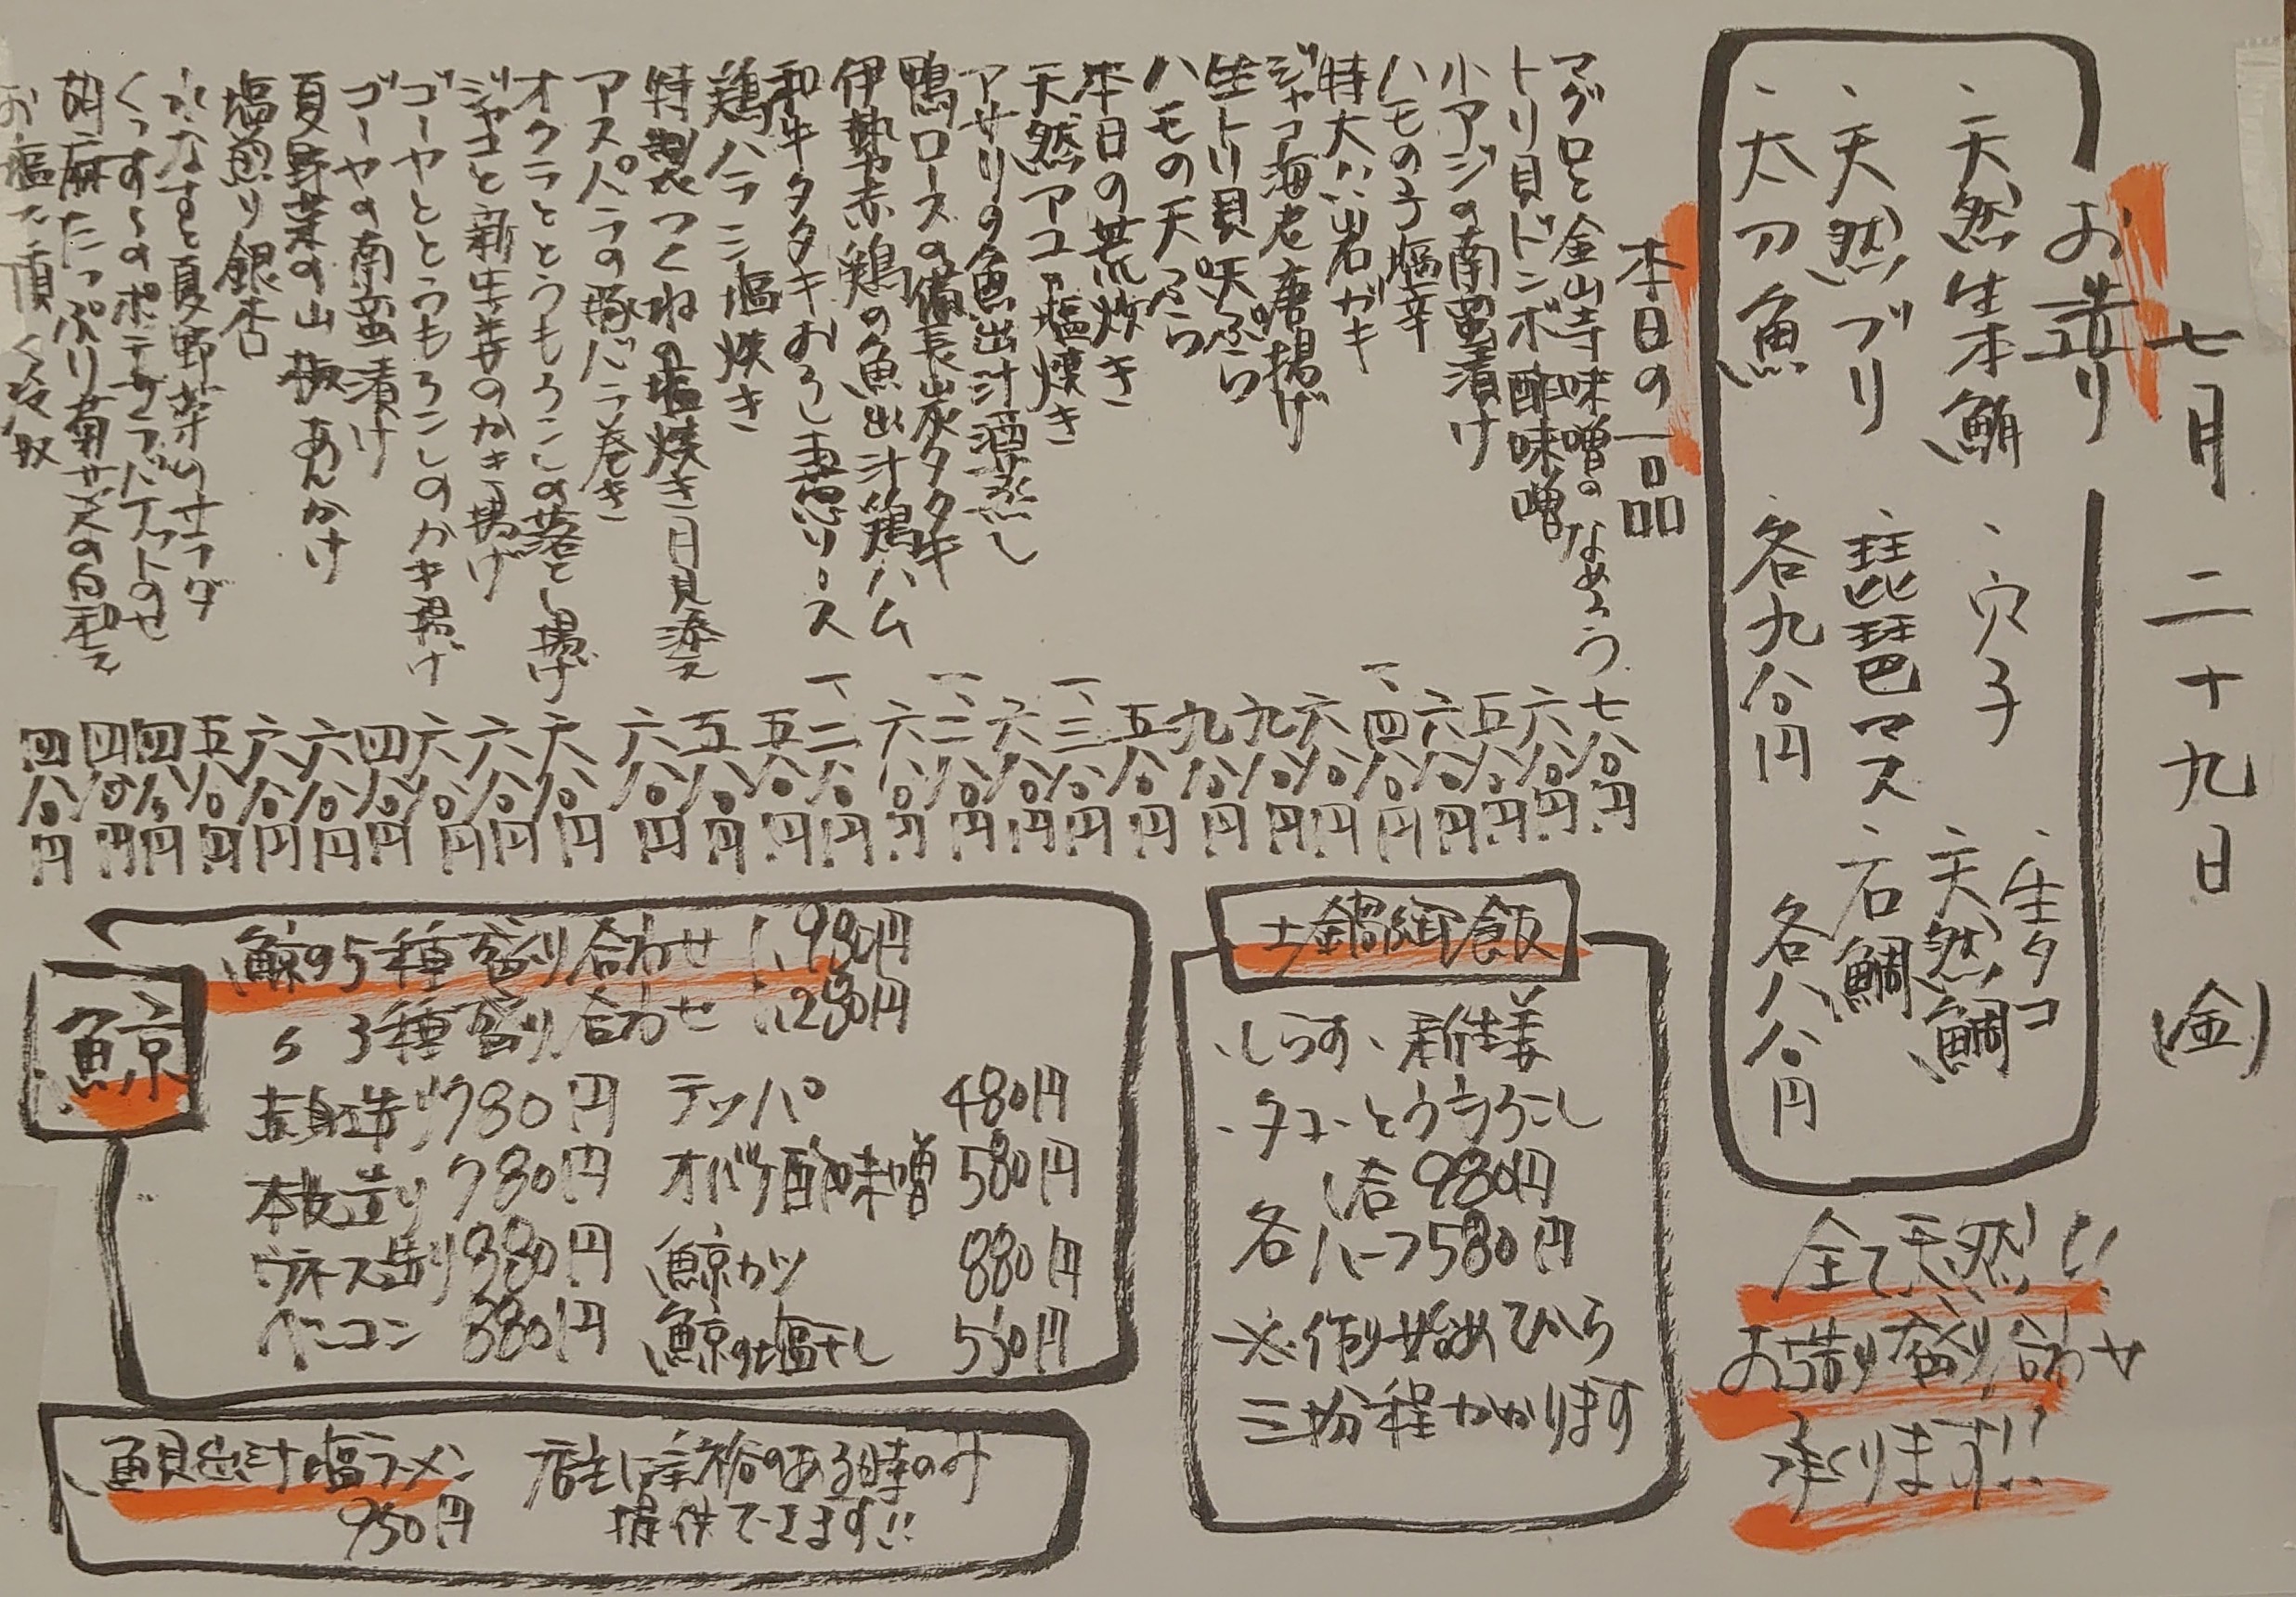 七月二十九日(金)
お造り
、天然生本鮪 、穴子 、生タコ
、天然ブリ 、琵琶マス 、天然鯛
、太刀魚 各九八〇円 、石鯛
各八八〇円
全て天然!!
お造り盛り合わせ
承ります!!
本日の一品
マグロと金山寺味噌のなめろう 七八〇円
トリ貝ドンボ酢味噌 六八〇円
小アジの南蛮漬け 五八〇円
ハモの子塩辛 六八〇円
特大!!岩ガキ 一、四八〇円
ジャコ海老唐揚げ 六八〇円
生トリ貝天ぷら 九八〇円
ハモの天ぷら 九八〇円
本日の荒炊き 五八〇円
天然アユの塩焼き 一、三八〇円
アサリの魚出汁酒蒸し 六八〇円
鴨ロースの備長炭タタキ 一、二八〇円
伊勢赤鶏の魚出汁鶏ハム 六八〇円
和牛タタキおろしポン酢ソース 一、二八〇円
鶏ハラミ塩焼き 五八〇円
特製つくねの塩焼き月見添え 五八〇円
アスパラの豚バラ巻き 六八〇円
オクラととうもろこしの落とし揚げ 六八〇円
ジャコと新生姜のかき揚げ 六八〇円
ゴーヤととうもろこしのかき揚げ 六八〇円
ゴーヤの南蛮漬け 四八〇円
夏野菜の山椒あんかけ 六八〇円
塩煎り銀杏 六八〇円
水なすと夏野菜のサラダ 五八〇円
くっすんのポテサラバケットのせ 四八〇円
胡麻たっぷり菊菜の白和え 四八〇円
四八〇円
土鍋御飯
、しらす、新生姜
、タコ、とうもろこし
一合 980円
各ハーフ580円
※作り始めてから
三十分程かかります
鯨
鯨の5種盛り合わせ 1,980円
〃 3種盛り合わせ 1,280円
赤身造り 780円 テッパ 480円
本皮造り 780円 オバケ酢味噌 580円
ウネス造り 880円 鯨カツ 880円
ベーコン 880円 鯨の塩干し 550円
、魚貝出汁塩ラーメン 店主に余裕のある時のみ
950円 提供できます!!